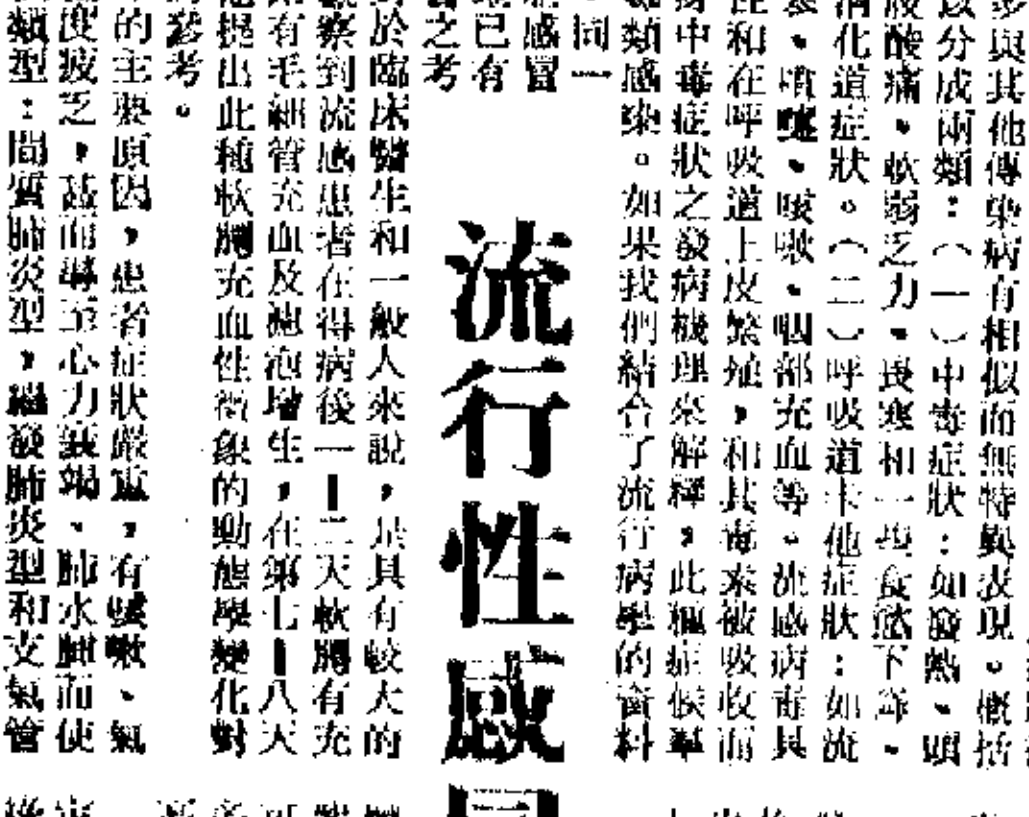 多與其他傳染病有相似而無特異表現。概括
分成兩類：（一）中毒症狀：如發熱、頭
酸痛、軟弱乏力、畏寒相一些食慾下降、
消化道症狀。（二）呼吸道卡他症狀：如流
、噴嚏、咳嗽、咽部充血等。流感病毒具
和在呼吸道上皮繁殖，和其毒素被吸收而
中毒症狀之發病機理來解釋，此種症候羣
類感染。如果我們結合了流行病學的資料
同一
感冒
已有
之考
流行性感
於臨床醫生和一般人來說，是具有較大的
察到流感患者在得病後一—二天軟腭有充
有毛細管充血及濾泡增生，在第七—八天
提出此種軟腭充血性徵象的動態學變化對
參考。
的主要原因，患者症狀嚴重，有咳嗽、氣
度疲乏，甚而導至心力衰竭、肺水腫而使
類型：間質肺炎型，繼發肺炎型和支氣管